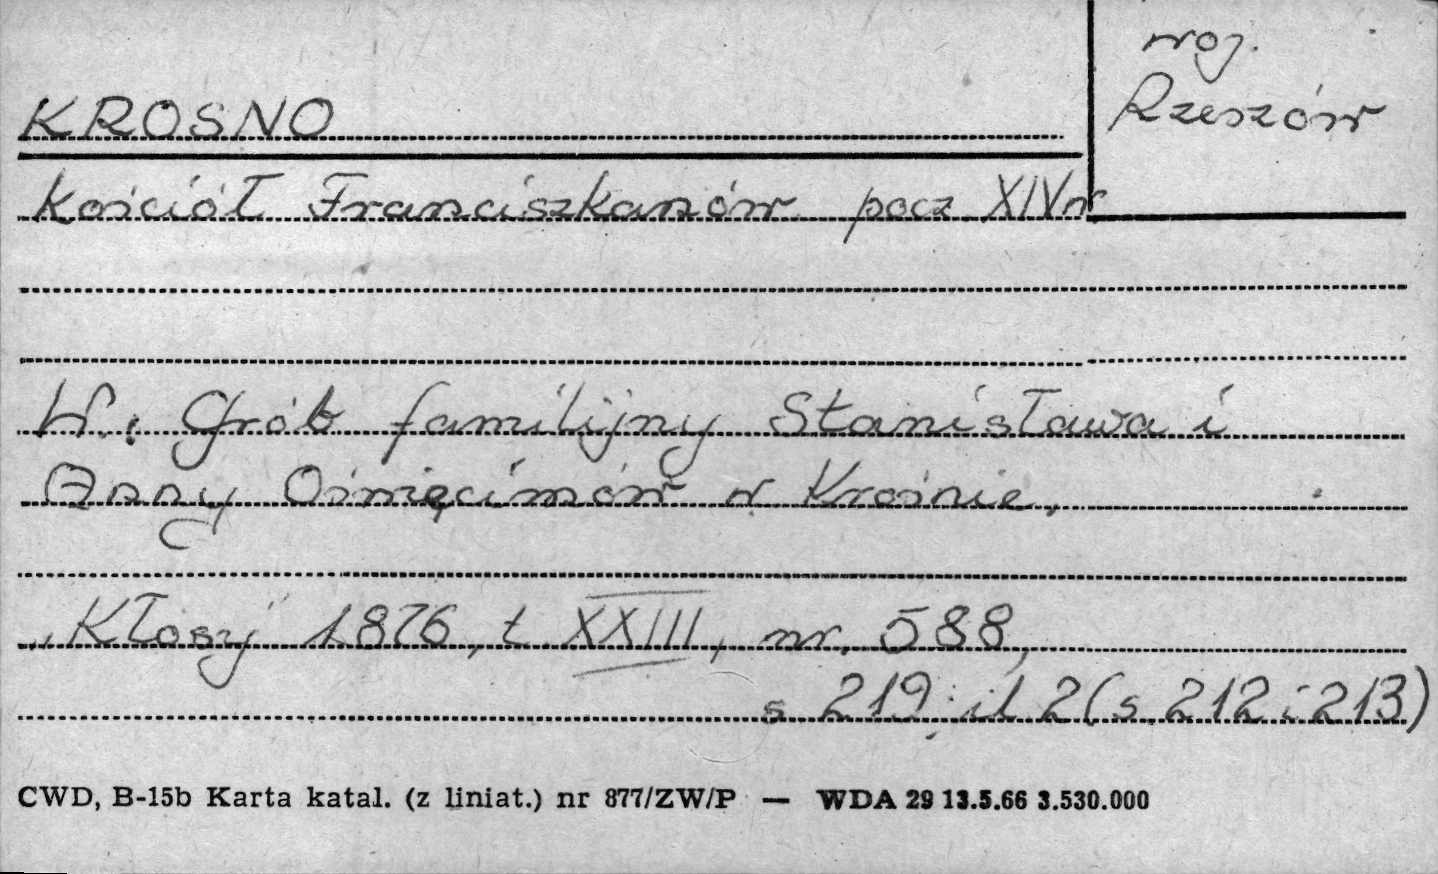 woj.
Rzeszów
KROSNO
Kościół Franciszkanów pocz XIV w
W.: Grób familijny Stanisława i
Anny Oświęcimów w Krośnie,
„Kłosy" 1876, t XXIII, nr. 588,
s 219; il 2 (s 212 i 213)
CWD, B-15b Karta katal. (z liniat.) nr 877/ZW/P — WDA 29 13.5.66 3.530.000